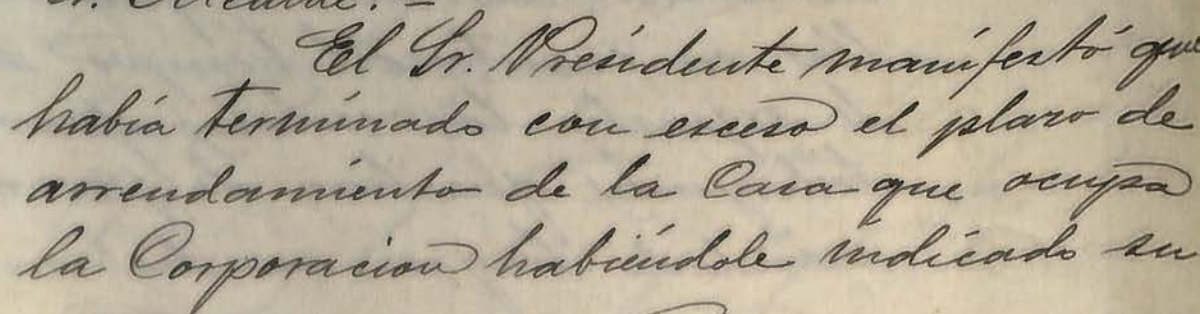 Sr. Alcalde. –
El Sr. Presidente manifestó que
había terminado con esceso el plazo de
arrendamiento de la Casa que ocupa
la Corporacion habiéndole indicado su